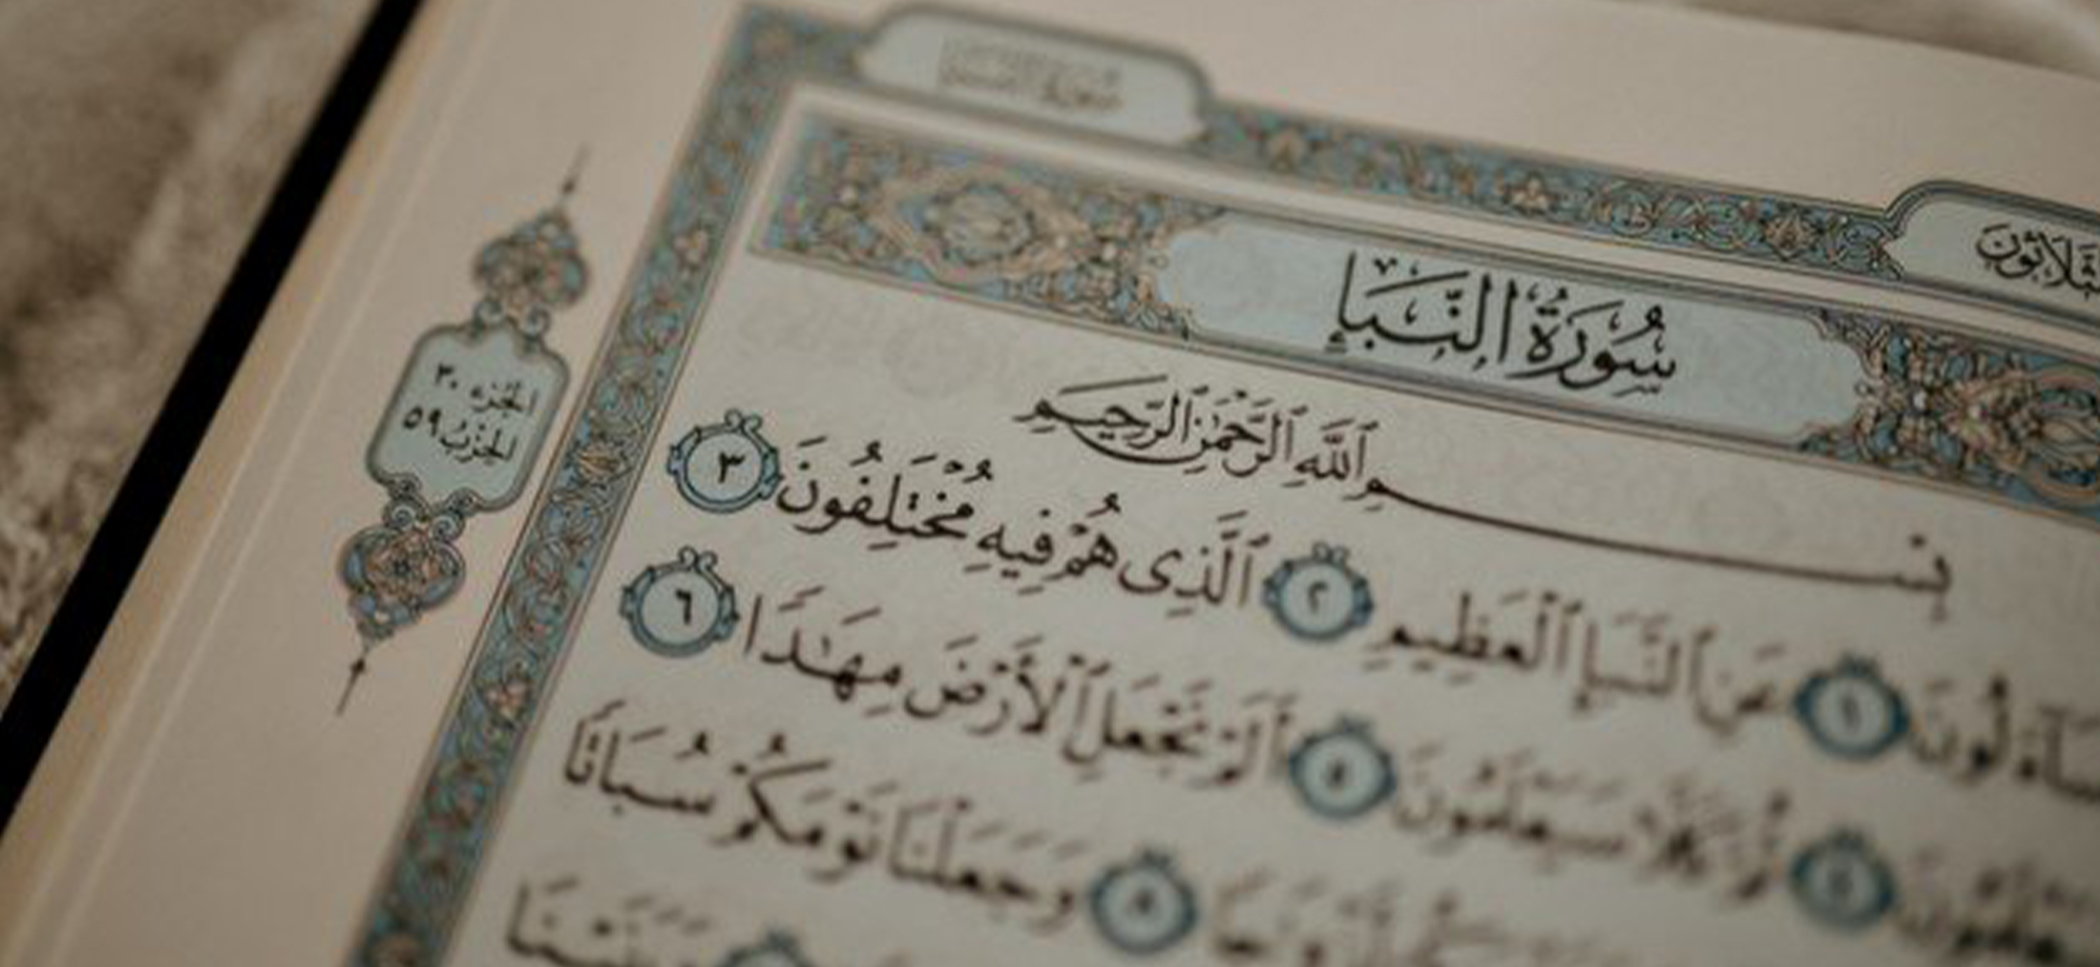 ثلاثون
سُورَةُ النَّبَإِ
الجزء ٣٠
الحزب ٥٩
بِسْمِ ٱللَّهِ ٱلرَّحْمَٰنِ ٱلرَّحِيمِ
عَنِ ٱلنَّبَإِ ٱلْعَظِيمِ ٢ ٱلَّذِى هُمْ فِيهِ مُخْتَلِفُونَ ٣
ثُمَّ كَلَّا سَيَعْلَمُونَ ٥ أَلَمْ نَجْعَلِ ٱلْأَرْضَ مِهَٰدًا ٦
٨ وَجَعَلْنَا نَوْمَكُمْ سُبَاتًا